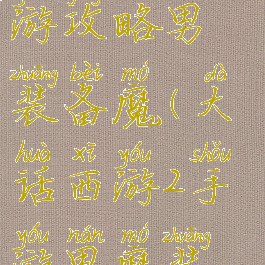 游攻略男
zhuāng bèi mó dà
装备魔(大
huà xī yóu shǒu
话西游2手
yóu nán mó zhuāng
游男魔装